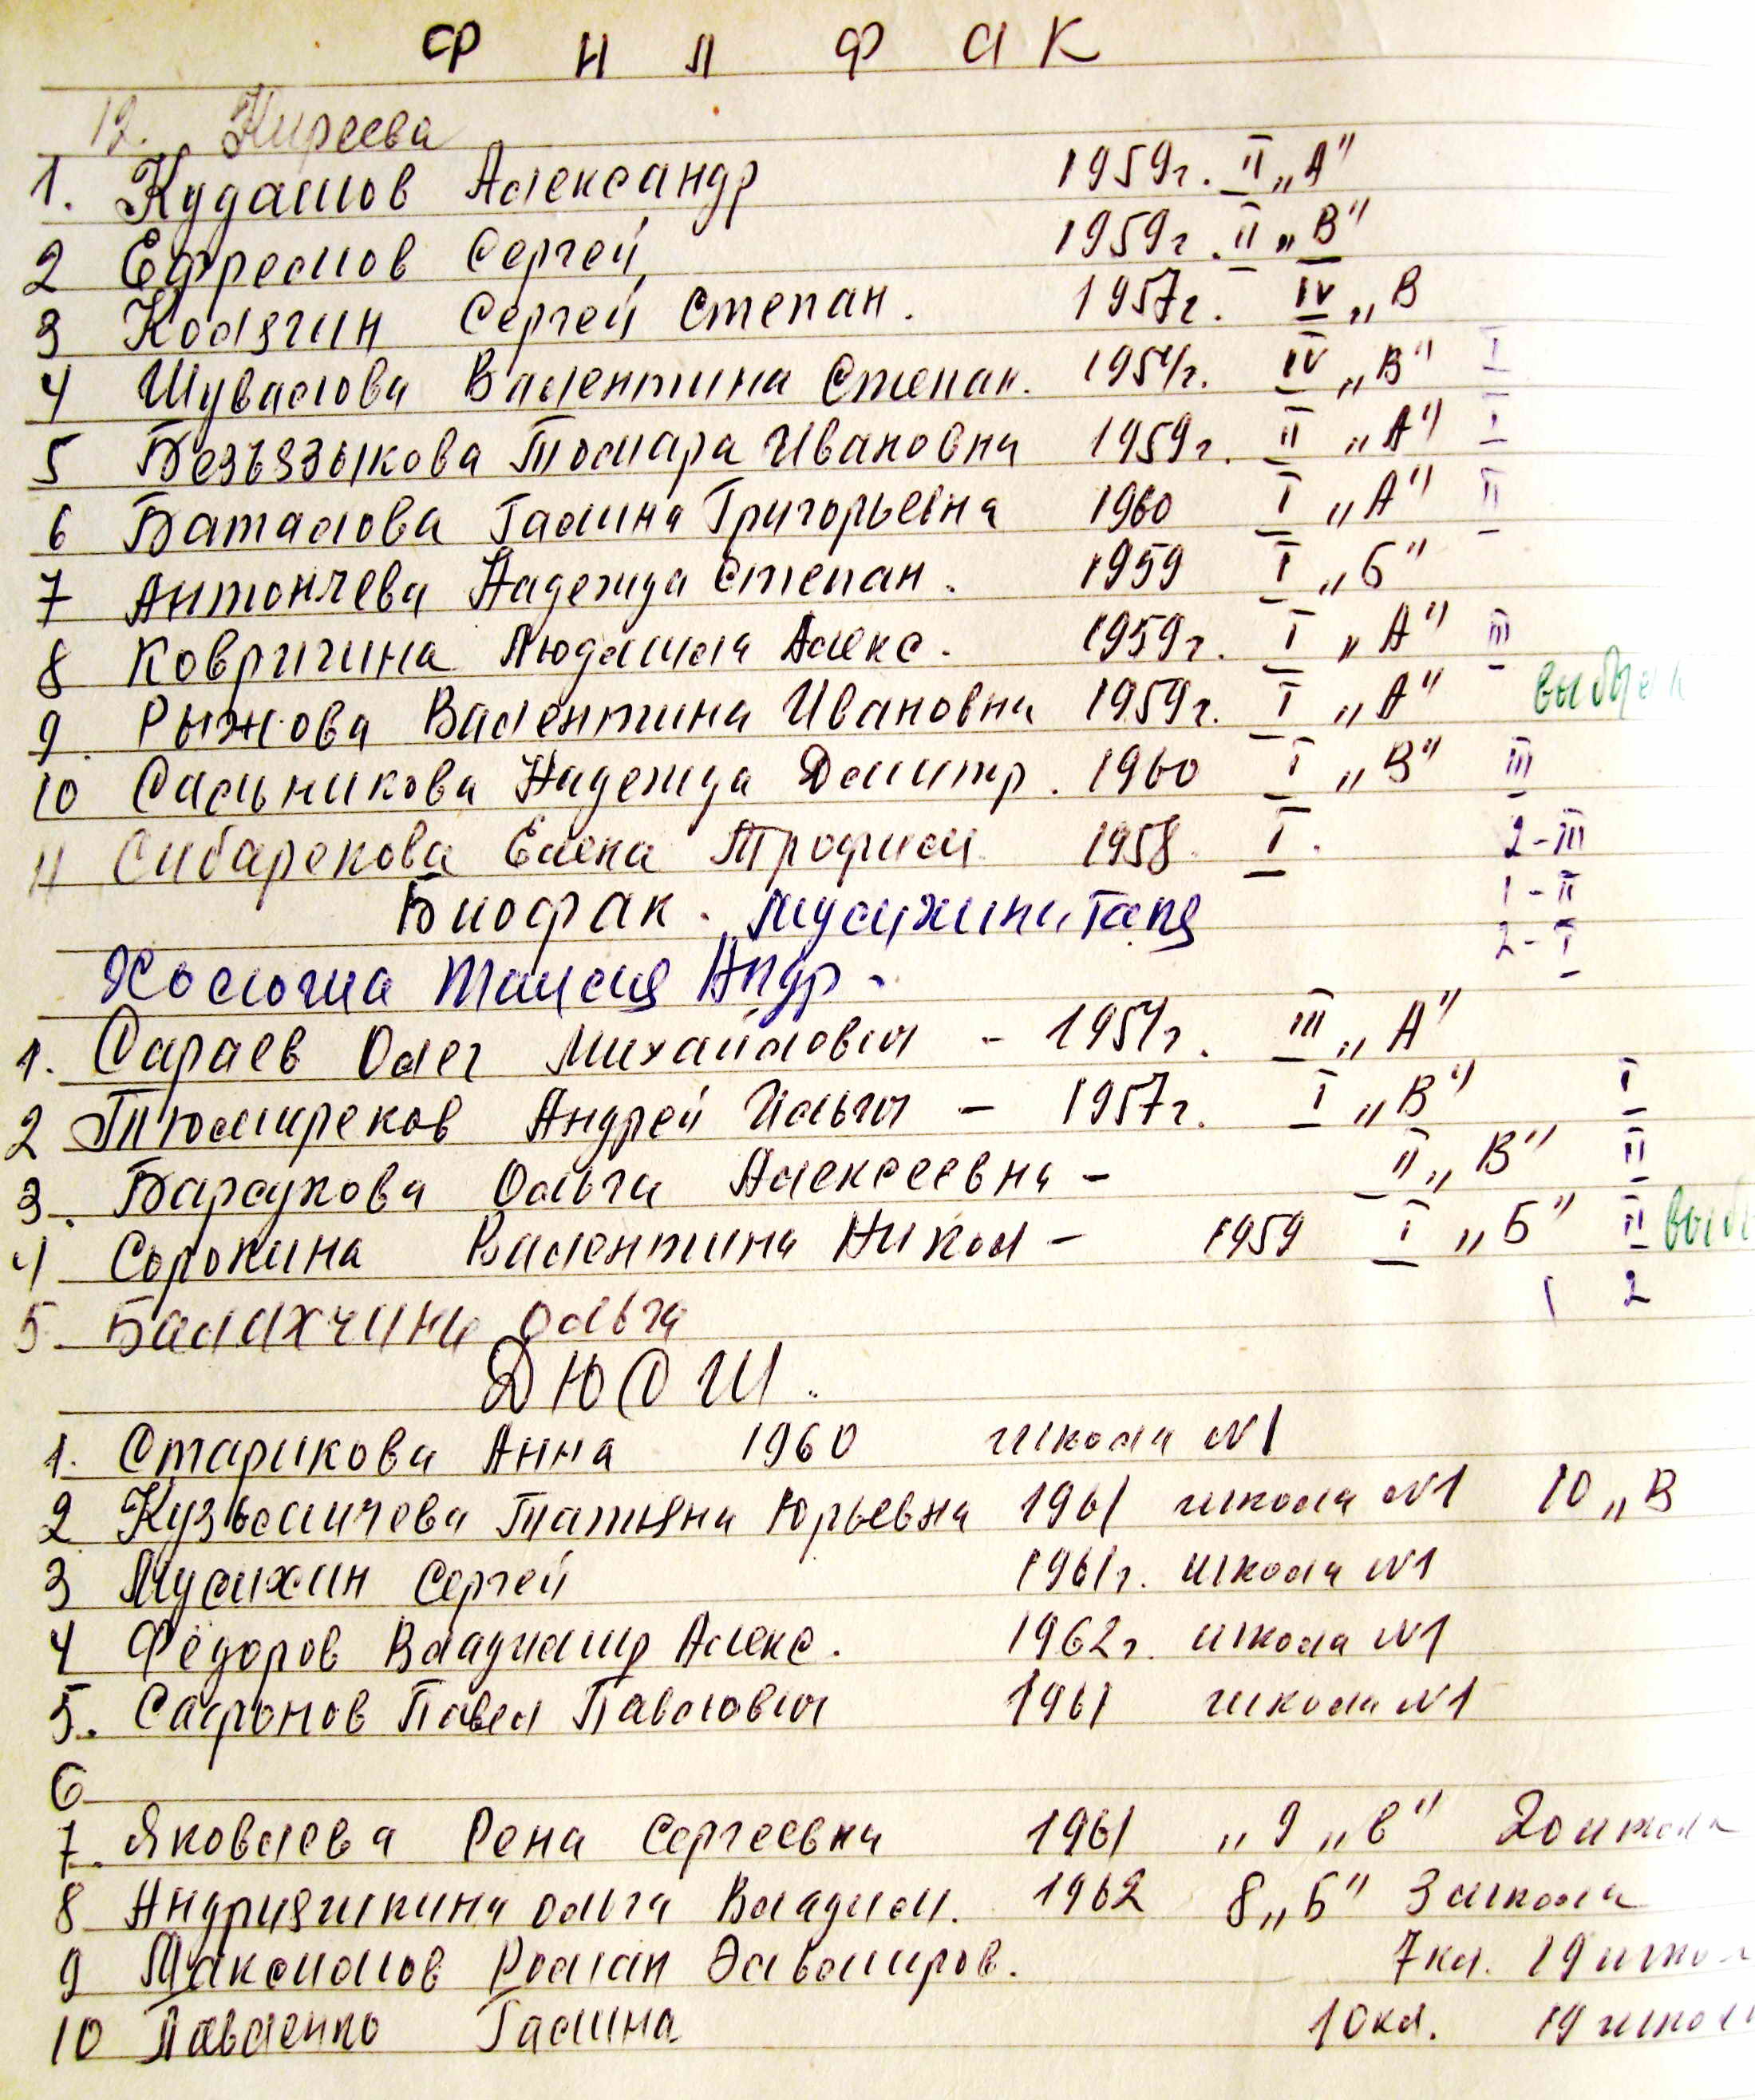 ФИЛФАК
12. Киреева
1. Кудашов Александр 1959г. II "А"
2 Ефремов Сергей 1959г. II "В"
3 Колягин Сергей Степан. 1957г. IV "В
4 Шувалова Валентина Степан. 1954г. IV "В" I
5 Безъязыкова Томара Ивановна 1959г. II "А" I
6 Баталова Галина Григорьевна 1960 I "А" II
7 Антончева Надежда Степан. 1959 I "Б"
8 Ковригина Людмила Алекс. 1959г. I "А" III
9 Рыжова Валентина Ивановна 1959г. I "А"
10 Сальникова Надежда Дмитр. 1960 I "В" III
11 Сибарекова Елена Трофим 1958 I. 2-III
Биофак. 1-II
2-I
Таисия Андр.
1. Сараев Олег Михайлович - 1954г. III "А"
2 Тюмиреков Андрей Ильич - 1957г. I "В" I
3. Барсукова Ольга Алексеевна - II "В" II
4 Сорокина Валентина Никол - 1959 I "Б" II
5. Балахчина Ольга 1 2
ДЮСШ.
1. Старикова Анна 1960 школа N1
2 Кузьмичева Татьяна Юрьевна 1961 школа N1 10 "В
3 Мусихин Сергей 1961г. школа N1
4 Фёдоров Владимир Алекс. 1962г. школа N1
5. Сафронов Павел Павлович 1961 школа N1
6
7. Яковлева Рена Сергеевна 1961 "9 "в" 20 школа
8 Андрияшкина Ольга Владим. 1962 8 "Б" 3 школа
9 Максимов Роман Эльвмиров. 7кл. 19 школ
10 Павленко Галина 10кл. 19 школ